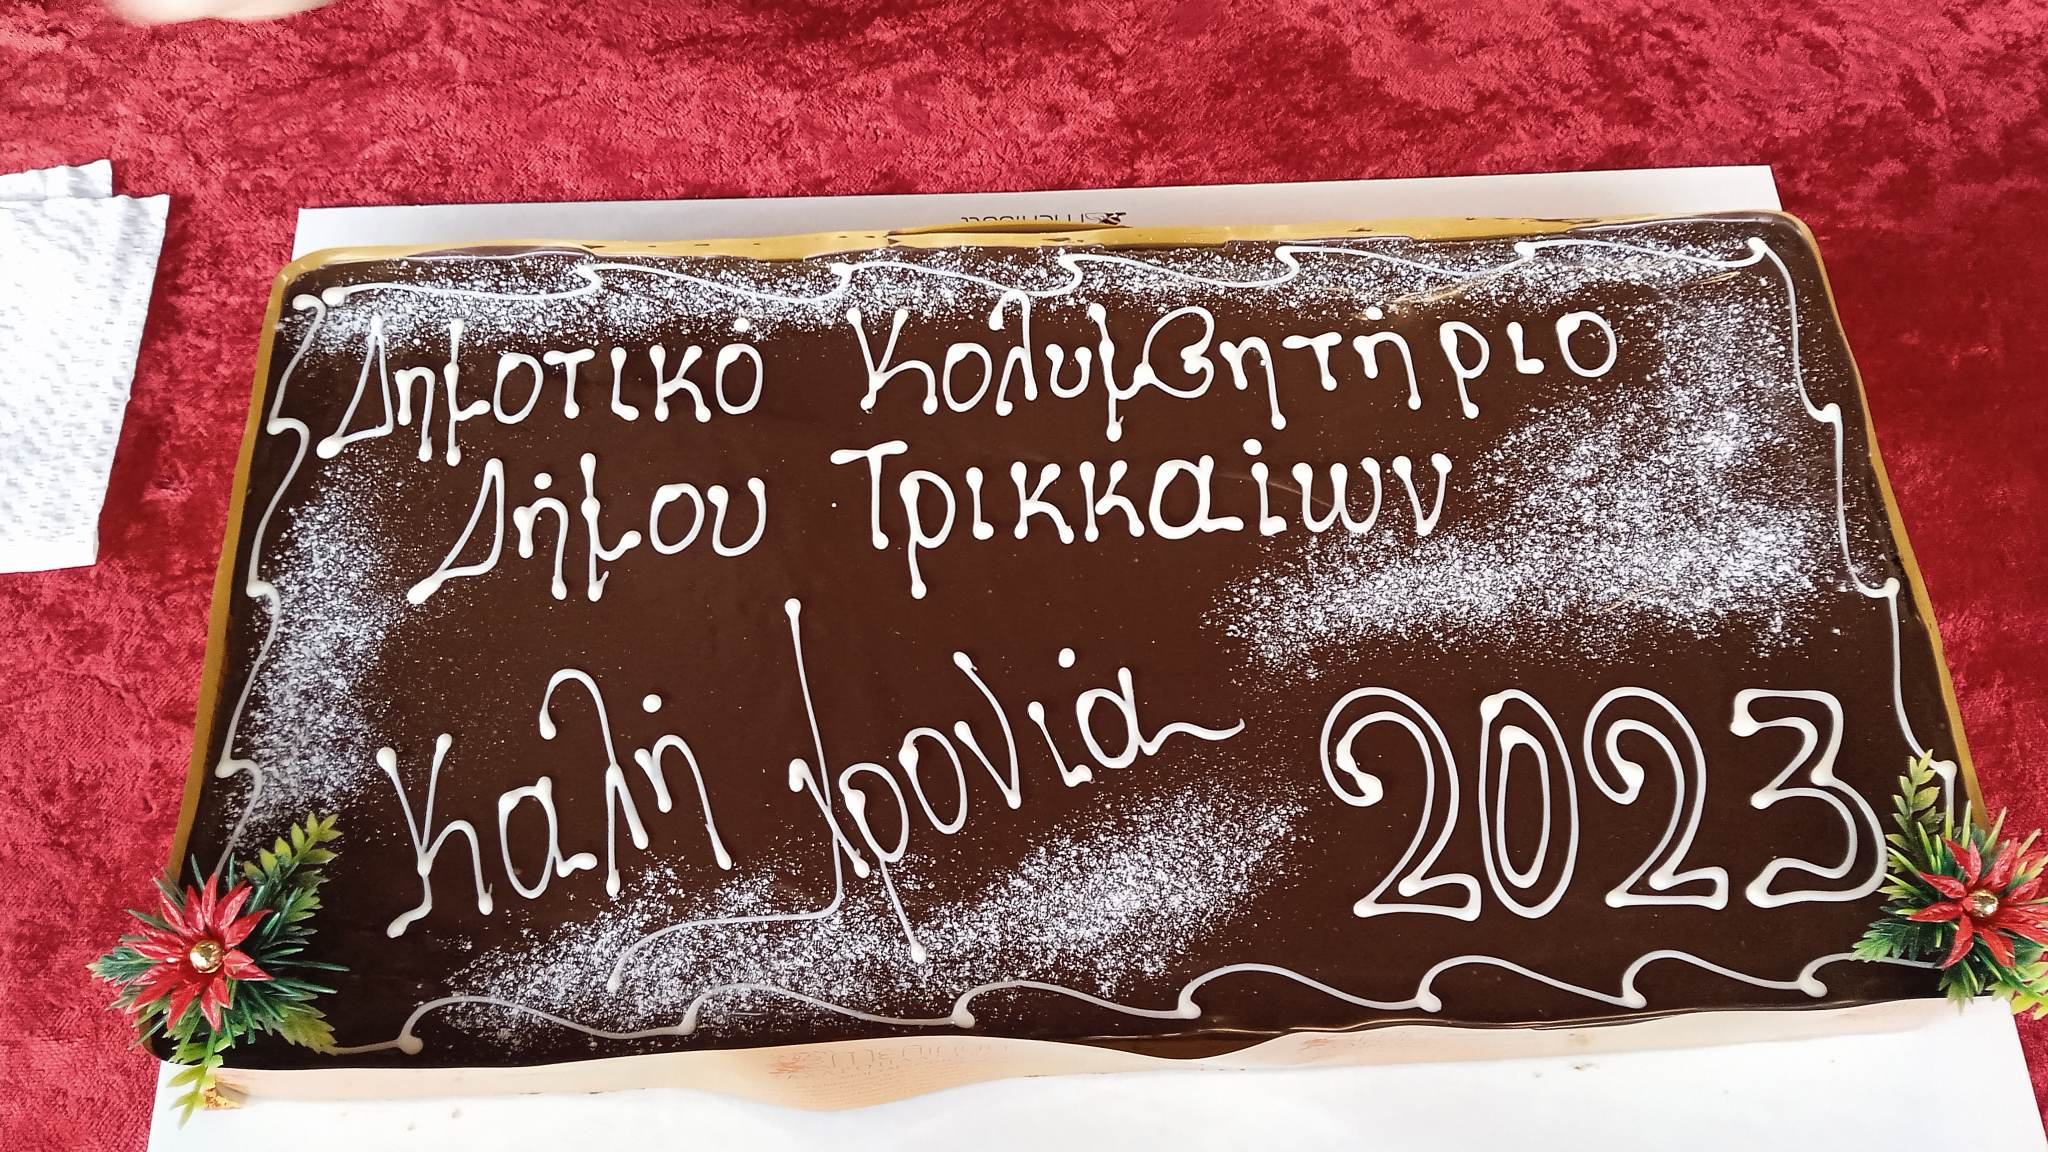 Δημοτικό Κολυμβητήριο
Δήμου Τρικκαίων
Καλή Χρονιά 2023